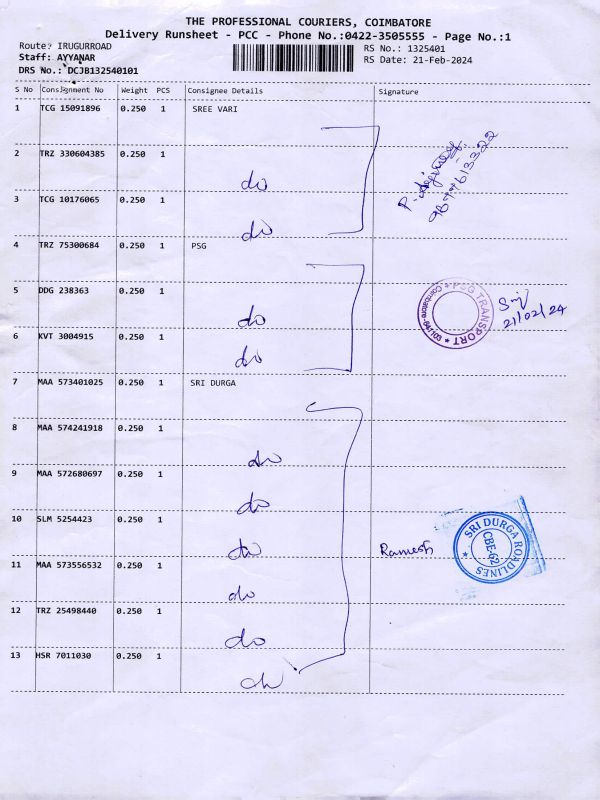 THE PROFESSIONAL COURIERS, COIMBATORE
Delivery Runsheet - PCC - Phone No.:0422-3505555 - Page No.:1
Route: IRUGURROAD
RS No.: 1325401
Staff: AYYANAR
RS Date: 21-Feb-2024
DRS No.: DCJB132540101
S No Consignment No Weight PCS Consignee Details Signature
1 TCG 15091896 0.250 1 SREE VARI
2 TRZ 330604385 0.250 1
do
9894613322
3 TCG 10176065 0.250 1
do
4 TRZ 75300684 0.250 1 PSG
5 DDG 238363 0.250 1
do
PSG TRANSPORT * Coimbatore-641103 *
21/02/24
6 KVT 3004915 0.250 1
do
7 MAA 573401025 0.250 1 SRI DURGA
8 MAA 574241918 0.250 1
do
9 MAA 572680697 0.250 1
do
10 SLM 5254423 0.250 1
do
Ramesh
SRI DURGA ROADLINES * CBE-62
11 MAA 573556532 0.250 1
do
12 TRZ 25498440 0.250 1
do
13 HSR 7011030 0.250 1
do